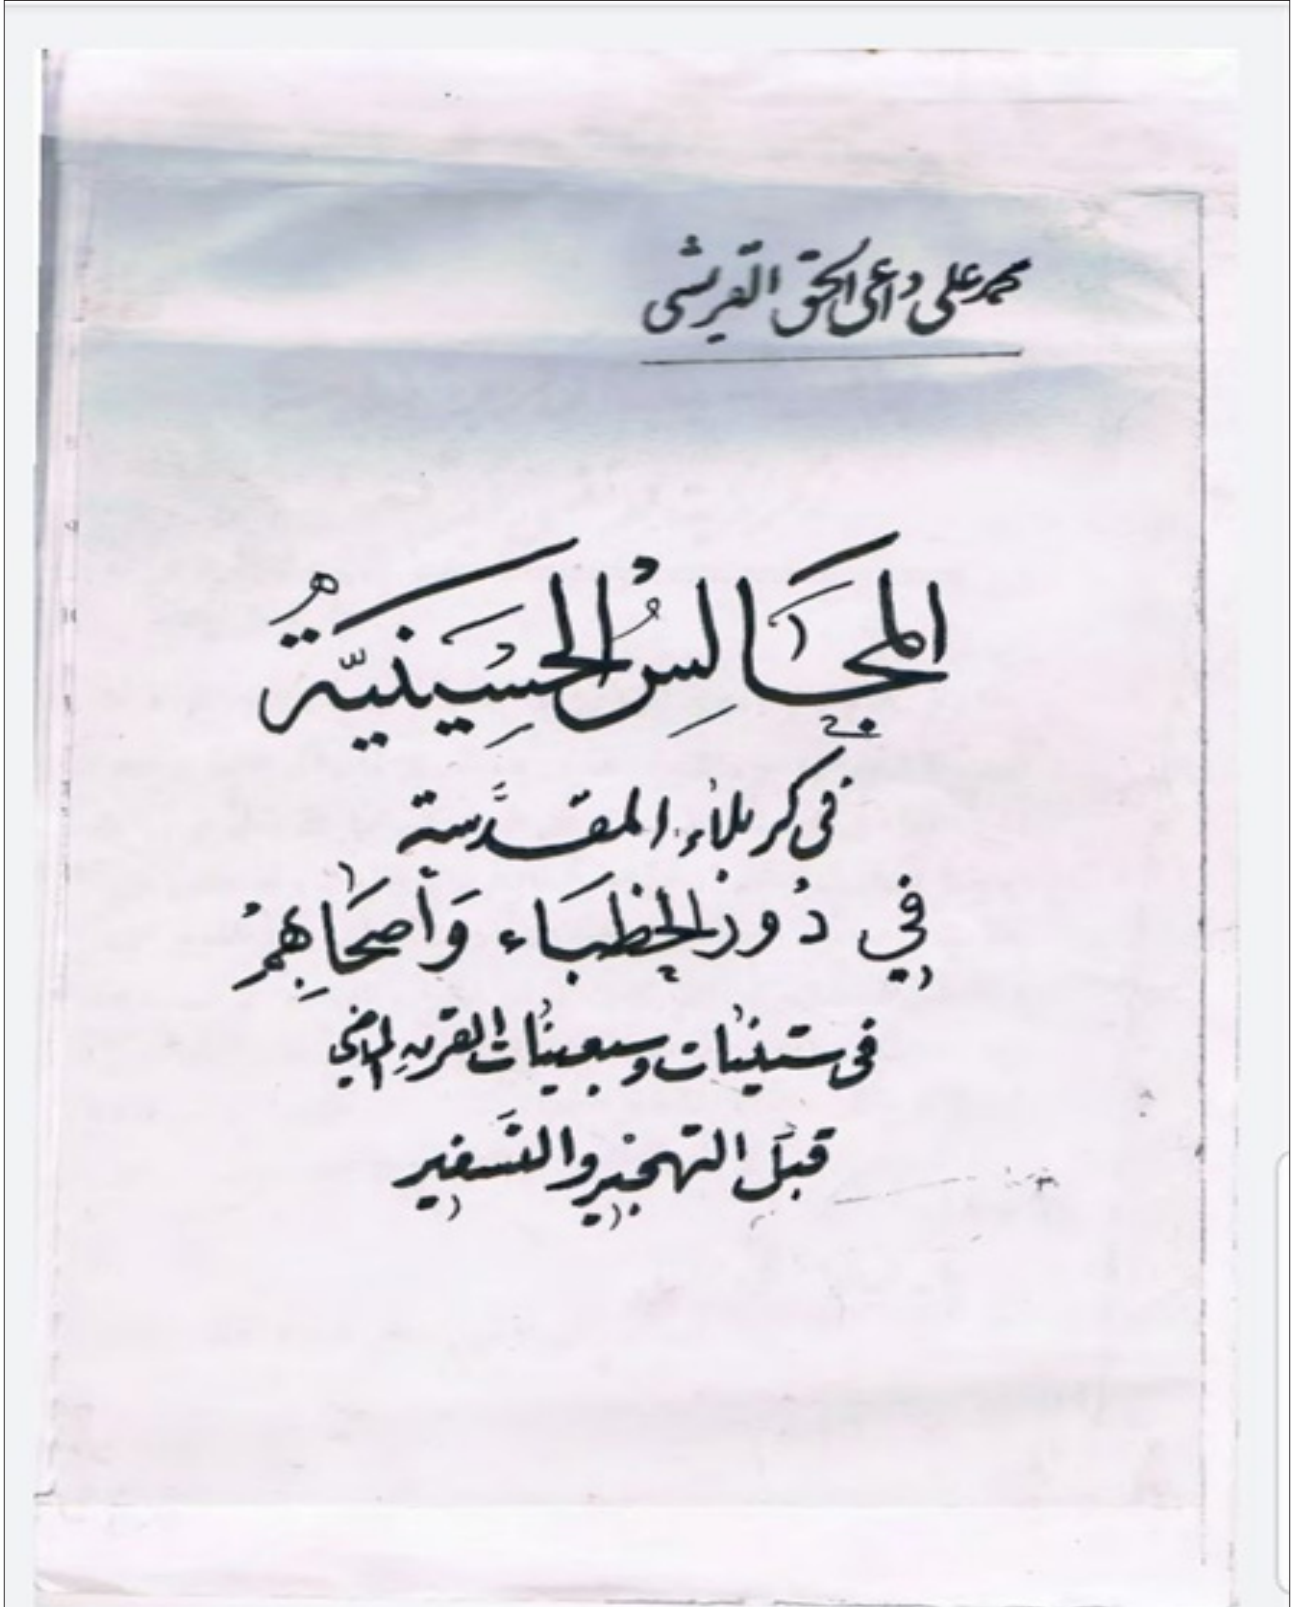 محمد علي داعي الحق القريشي
المَجَالِسُ الحُسَينيَّةُ
في كربلاء المقدَّسة
في دُور الخطَباء وَأصحَابِهِمْ
في ستينيات وسبعينيات القرنِ الماضي
قبلَ التهجير والتَسفير